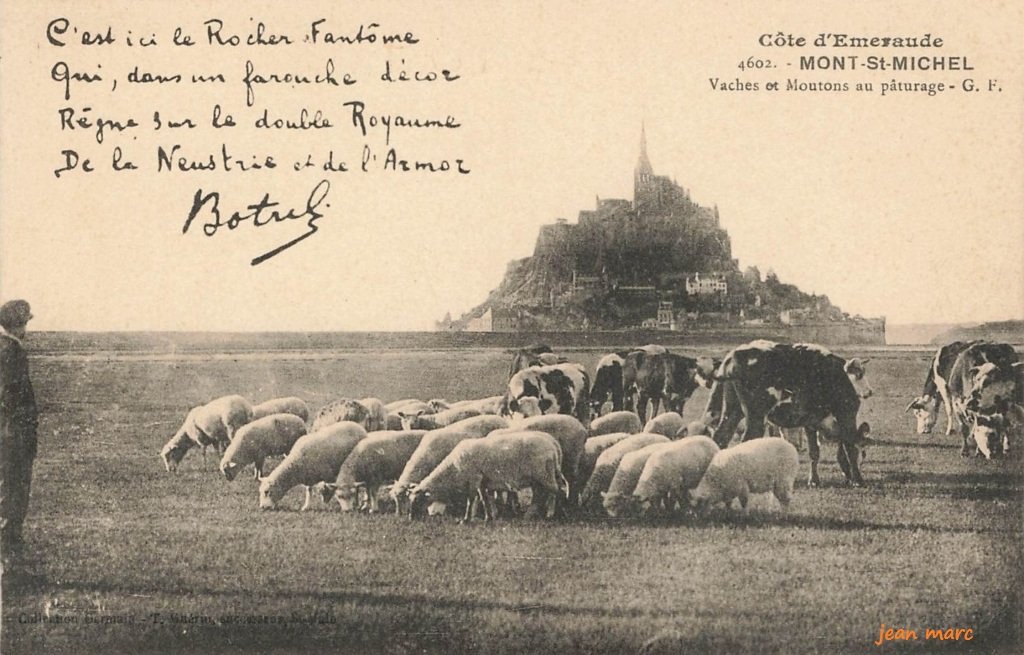 C'est ici le Rocher Fantôme
Qui, dans un farouche décor
Règne sur le double Royaume
De la Neustrie et de l'Armor
Botrel
Côte d'Emeraude
4602. - MONT-St-MICHEL
Vaches et Moutons au pâturage - G. F.
Collection Germain - T. Guérin,
jean marc